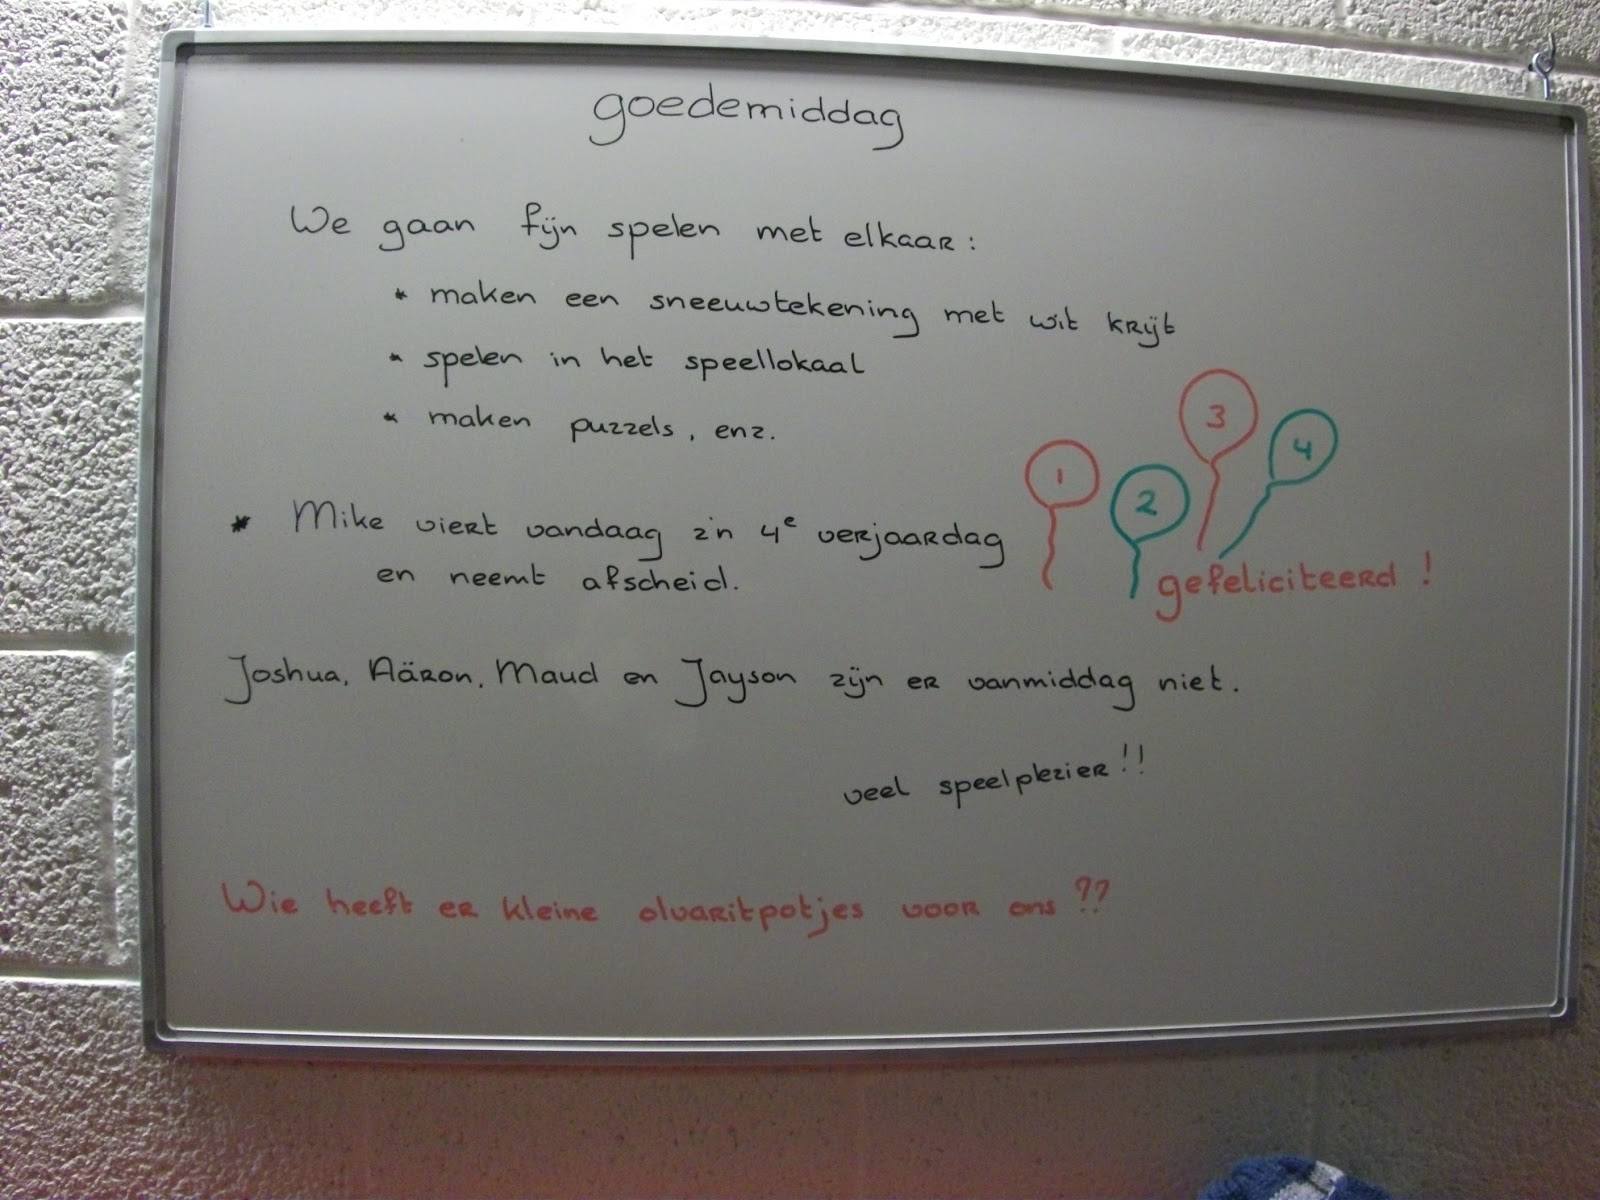 goedemiddag
We gaan fijn spelen met elkaar:
* maken een sneeuwtekening met wit krijt
* spelen in het speellokaal
* maken puzzels, enz.
* Mike viert vandaag z'n 4e verjaardag
en neemt afscheid.
1 2 3 4
gefeliciteerd!
Joshua, Aäron, Maud en Jayson zijn er vanmiddag niet.
veel speelplezier!!
Wie heeft er kleine olvaritpotjes voor ons??